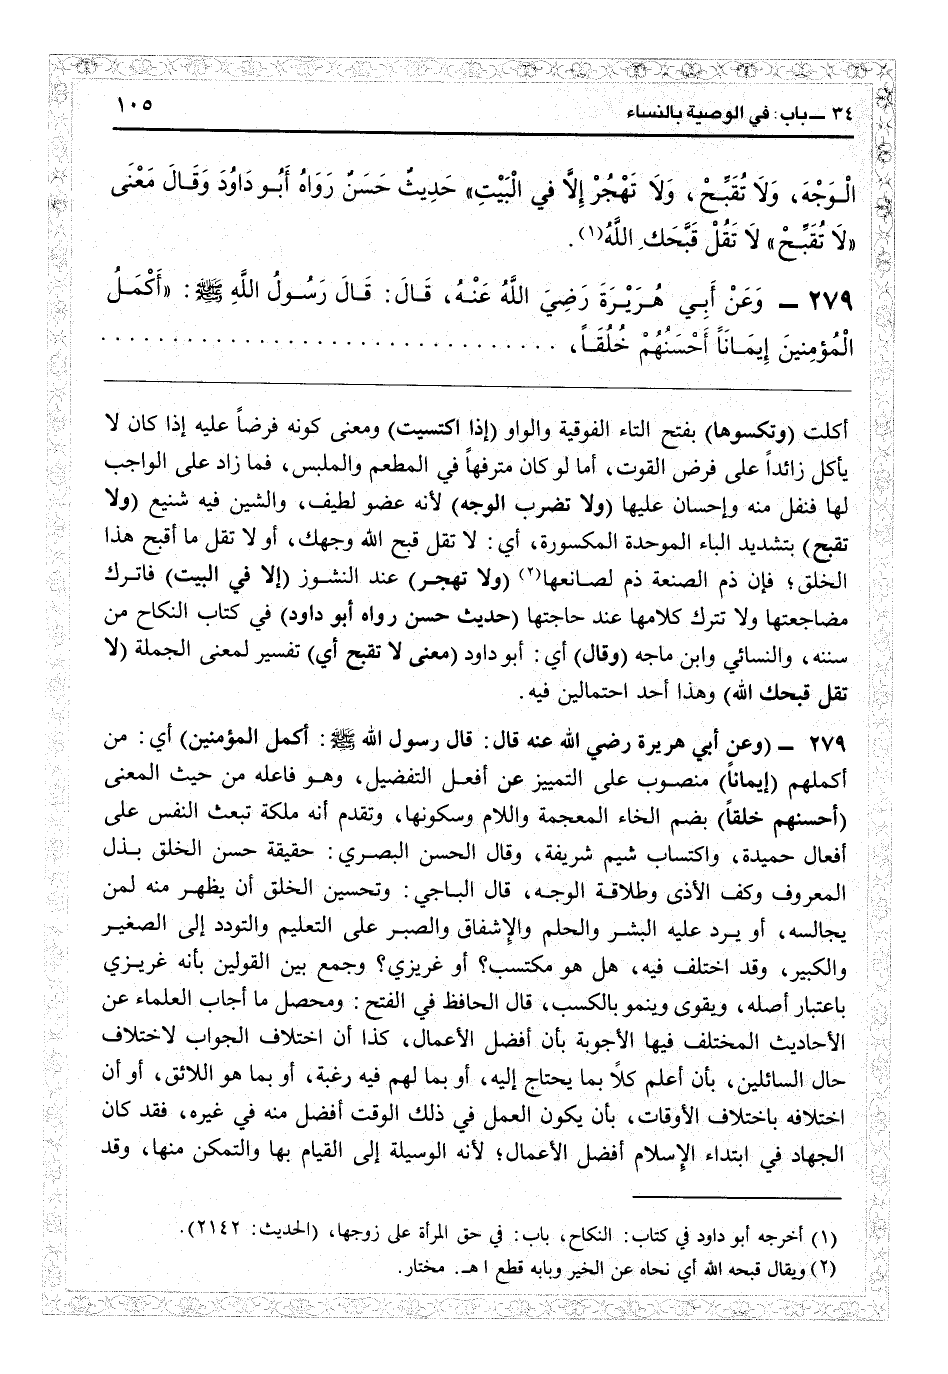 ٣٤ ــ باب: في الوصية بالنساء ١٠٥
الْـوَجْهَ، وَلَا تُقَبِّـحْ، وَلَا تَهْجُرْ إِلَّا في الْبَيْتِ» حَدِيثٌ حَسَنٌ رَوَاهُ أَبُـو دَاوُدَ وَقَـالَ مَعْنَى
«لَا تُقَبِّـحْ» لَا تَقُلْ قَبَّحَكِ اللَّهُ(١).
٢٧٩ ــ وَعَنْ أَبِـي هُـرَيْـرَةَ رَضِـيَ اللَّهُ عَنْـهُ، قَـالَ: قَـالَ رَسُـولُ اللَّهِ ﷺ: «أَكْمَـلُ
الْمُؤمِنينَ إيمَـانَاً أَحْسَنُهُمْ خُلُقَـاً، . . . . . . . . . . . . . . . . . . . . . . . . . . . . . . . . .
أكلت (وتكسوها) بفتح التاء الفوقية والواو (إذا اكتسيت) ومعنى كونه فرضاً عليه إذا كان لا
يأكل زائداً على فرض القوت، أما لو كان مترفهاً في المطعم والملبس، فما زاد على الواجب
لها فنفل منه وإحسان عليها (ولا تضرب الوجه) لأنه عضو لطيف، والشين فيه شنيع (ولا
تقبح) بتشديد الباء الموحدة المكسورة، أي: لا تقل قبح الله وجهك، أو لا تقل ما أقبح هذا
الخلق؛ فإن ذم الصنعة ذم لصانعها(٢) (ولا تهجـر) عند النشوز (إلا في البيت) فاتـرك
مضاجعتها ولا تترك كلامها عند حاجتها (حديث حسن رواه أبو داود) في كتاب النكاح من
سننه، والنسائي وابن ماجه (وقال) أي: أبو داود (معنى لا تقبح أي) تفسير لمعنى الجملة (لا
تقل قبحك الله) وهذا أحد احتمالين فيه.
٢٧٩ ــ (وعن أبي هريرة رضي الله عنه قال: قال رسول الله ﷺ: أكمل المؤمنين) أي: من
أكملهم (إيماناً) منصـوب على التمييز عن أفعـل التفضيل، وهـو فاعله من حيث المعنى
(أحسنهم خلقاً) بضم الخاء المعجمة واللام وسكونها، وتقدم أنه ملكة تبعث النفس على
أفعال حميدة، واكتساب شيم شريفة، وقال الحسن البصري: حقيقة حسن الخلق بـذل
المعروف وكف الأذى وطلاقـة الوجـه، قال البـاجي: وتحسين الخلق أن يظهـر منه لمن
يجالسه، أو يـرد عليه البشـر والحلم والإشفاق والصبـر على التعليم والتودد إلى الصغيـر
والكبير، وقد اختلف فيه، هل هو مكتسب؟ أو غريزي؟ وجمع بين القولين بأنه غريـزي
باعتبار أصله، ويقوى وينمو بالكسب، قال الحافظ في الفتح: ومحصل ما أجاب العلماء عن
الأحاديث المختلف فيها الأجوبة بأن أفضل الأعمال، كذا أن اختلاف الجواب لاختلاف
حال السائلين، بأن أعلم كلاً بما يحتاج إليه، أو بما لهم فيه رغبة، أو بما هو اللائق، أو أن
اختلافه باختلاف الأوقات، بأن يكون العمل في ذلك الوقت أفضل منه في غيره، فقد كان
الجهاد في ابتداء الإسلام أفضل الأعمال؛ لأنه الوسيلة إلى القيام بها والتمكن منها، وقد
(١) أخرجه أبو داود في كتاب: النكاح، باب: في حق المرأة على زوجها، (الحديث: ٢١٤٢).
(٢) ويقال قبحه الله أي نحاه عن الخير وبابه قطع ا هـ. مختار.